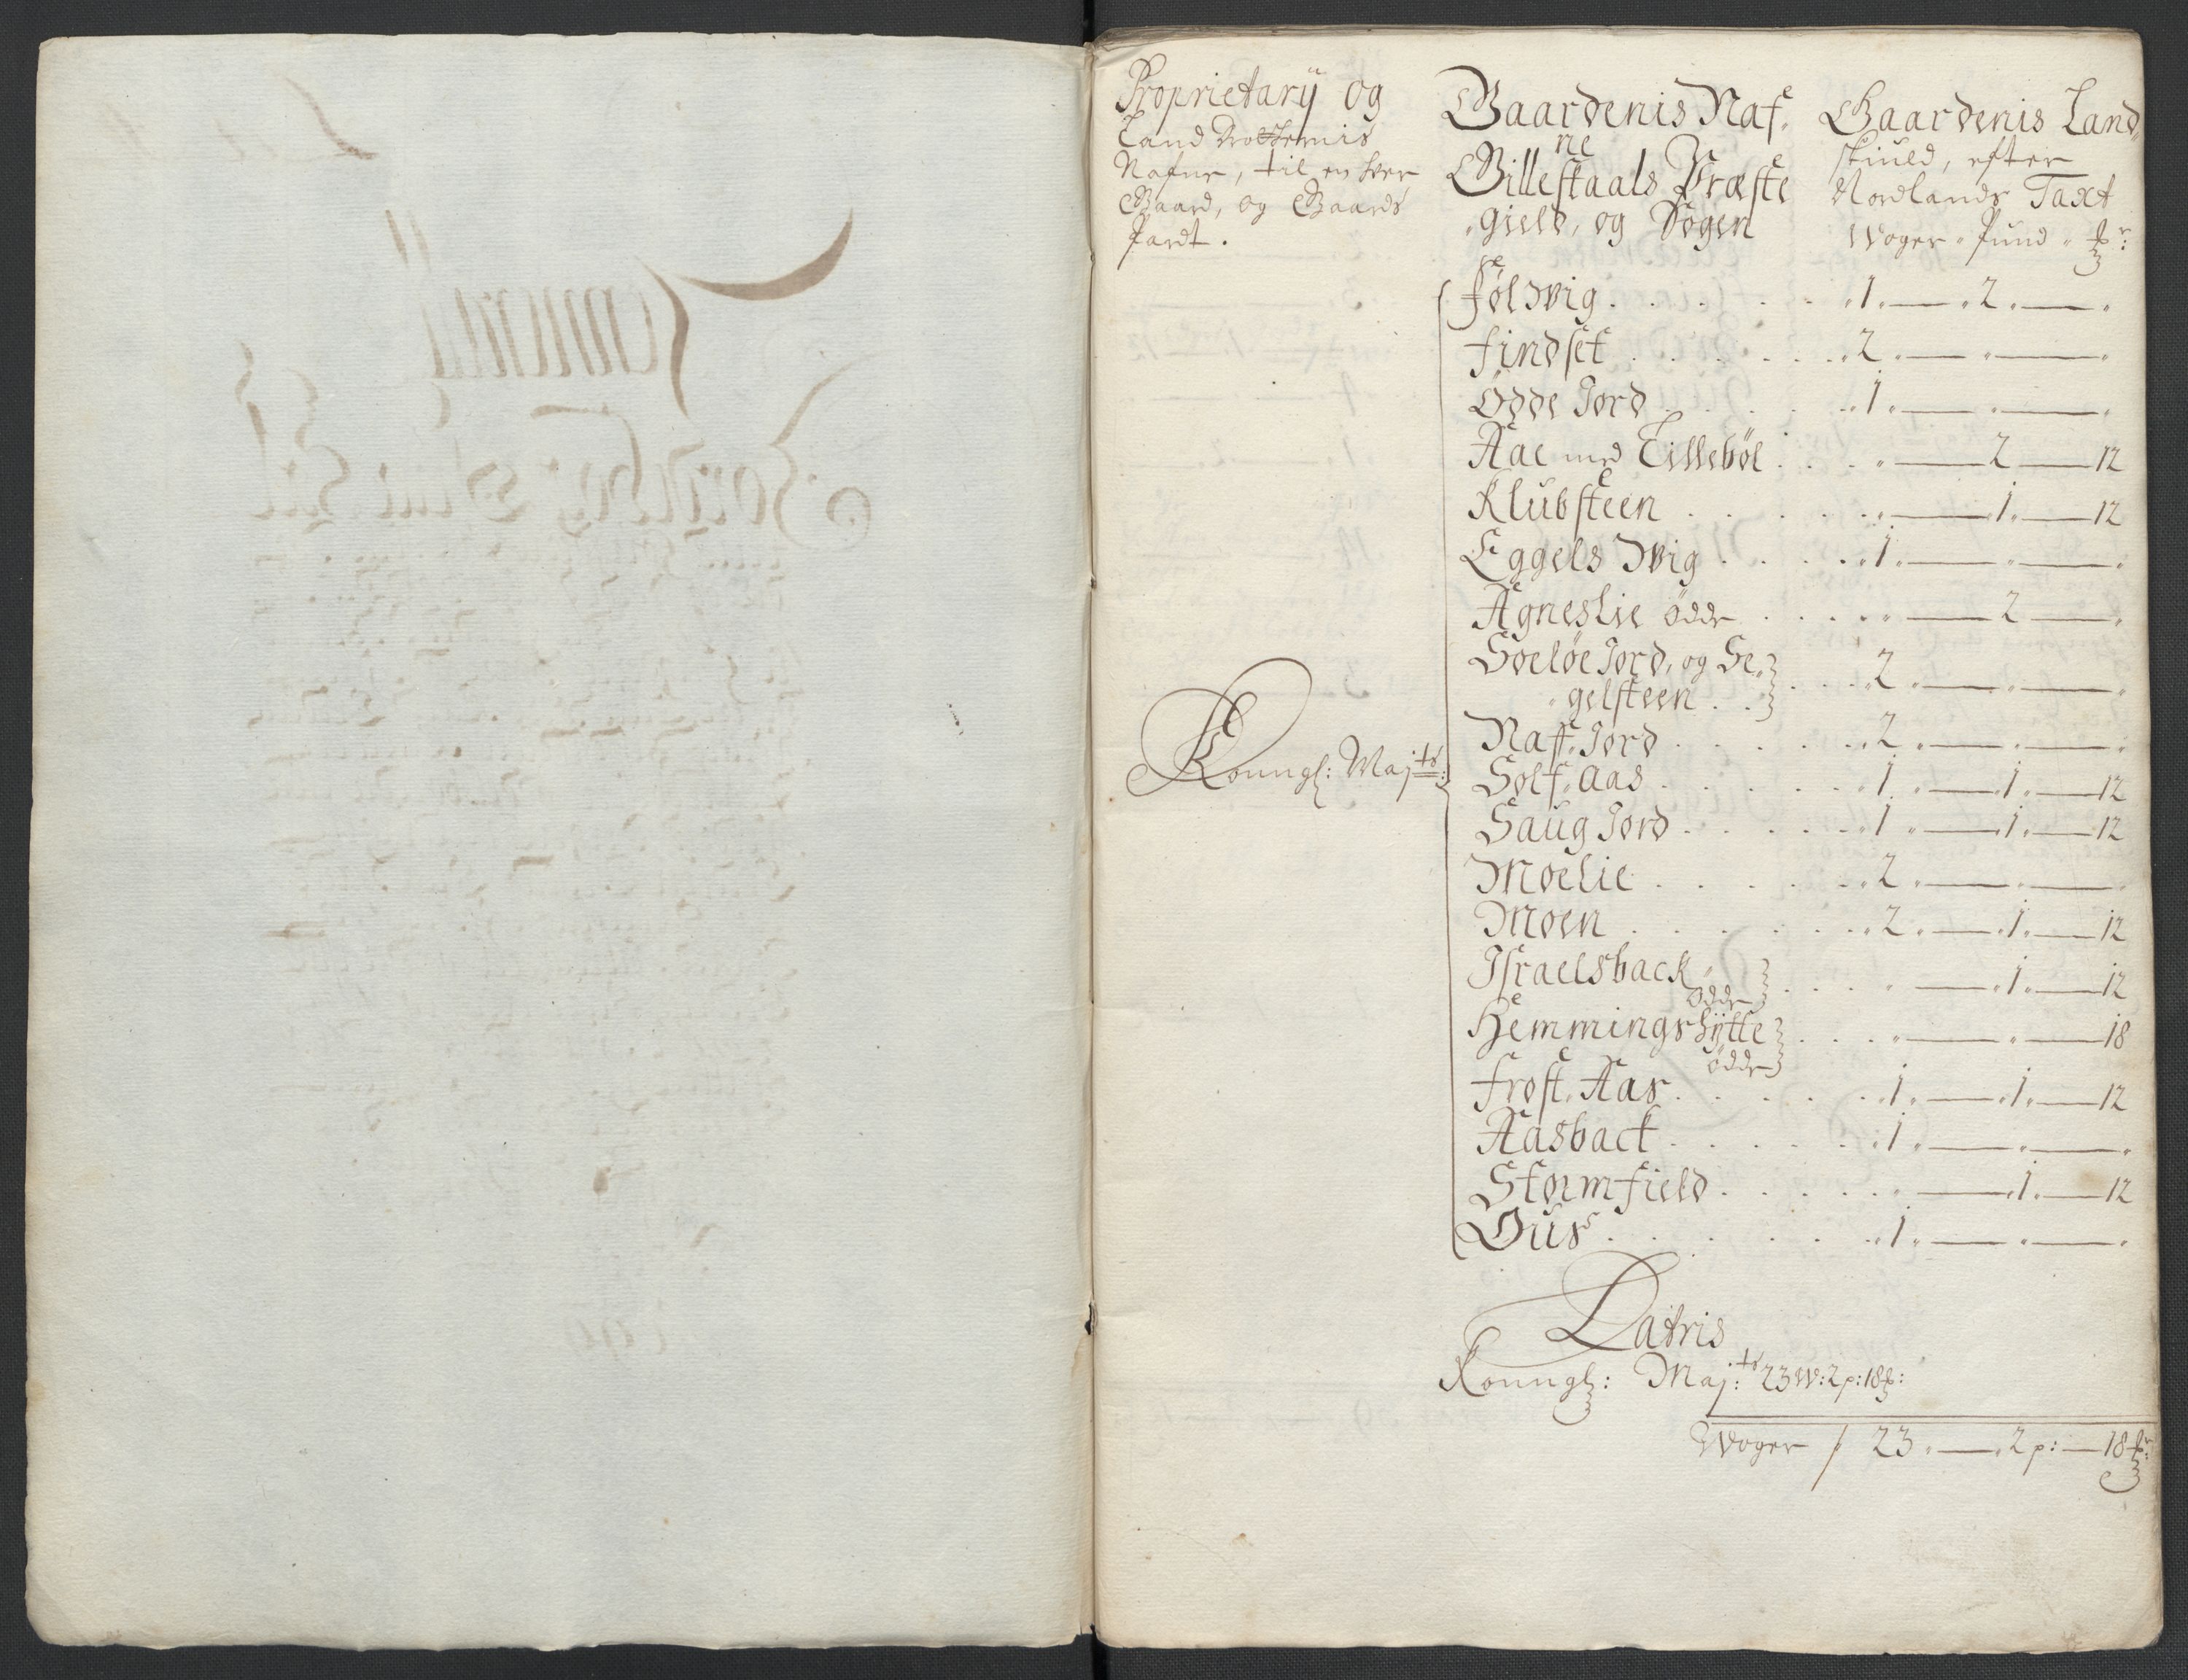 Proprietarÿ og
Land Drotternis
Nafne, til en hver
Gaard, og Gaards
Part.
Gaardenis Naf-
ne
Gilleskaals Præste
gield, og Sogen
Gaardenis Land
skiuld, efter
Nordlands Taxt
Woger " Pund " ℔r:
Følvig . . . . . 1 — 2 —
Findset . . . . . 2 — —
Ødde Jord . . . . . 1 — —
Aae med Tillebøl . . . — 2 — 12
Klubsteen . . . . . — 1 — 12
Eggels Vvig . . . . 1 — —
Agneslie ødde . . . . — 2 —
Soeløe Jord, og Se-
gelsteen . . . . . 2 — —
Naf. Jord . . . . . 2 — —
Sølf. Aas . . . . . 1 — 1 — 12
Saug Jord . . . . . 1 — 1 — 12
Moelie . . . . . 2 — —
Moen . . . . . 2 — 1 — 12
Israelsback
ødde . . . — 1 — 12
Hemmingshÿtte
ødde . . . — — 18
Frost. Aas . . . . . 1 — 1 — 12
Aasback . . . . . 1 — —
Stormfield . . . . . — 1 — 12
Ous . . . . . 1 — —
Konngl: Majts:
Latris
Konngl: Maj:ts 23 W: 2 p: 18 ℔:
Woger / 23 — 2 p: — 18 ℔r: